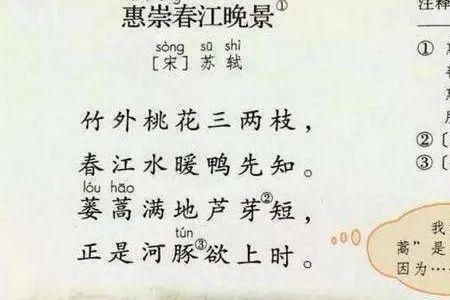 惠崇春江晚景①
sòng sū shì
[宋] 苏 轼
竹外桃花三两枝，
春江水暖鸭先知。
lóu hāo
蒌蒿满地芦芽②短，
tún
正是河豚③欲上时。
注释
①
②〔
③〔
我
蒿”是
因为…